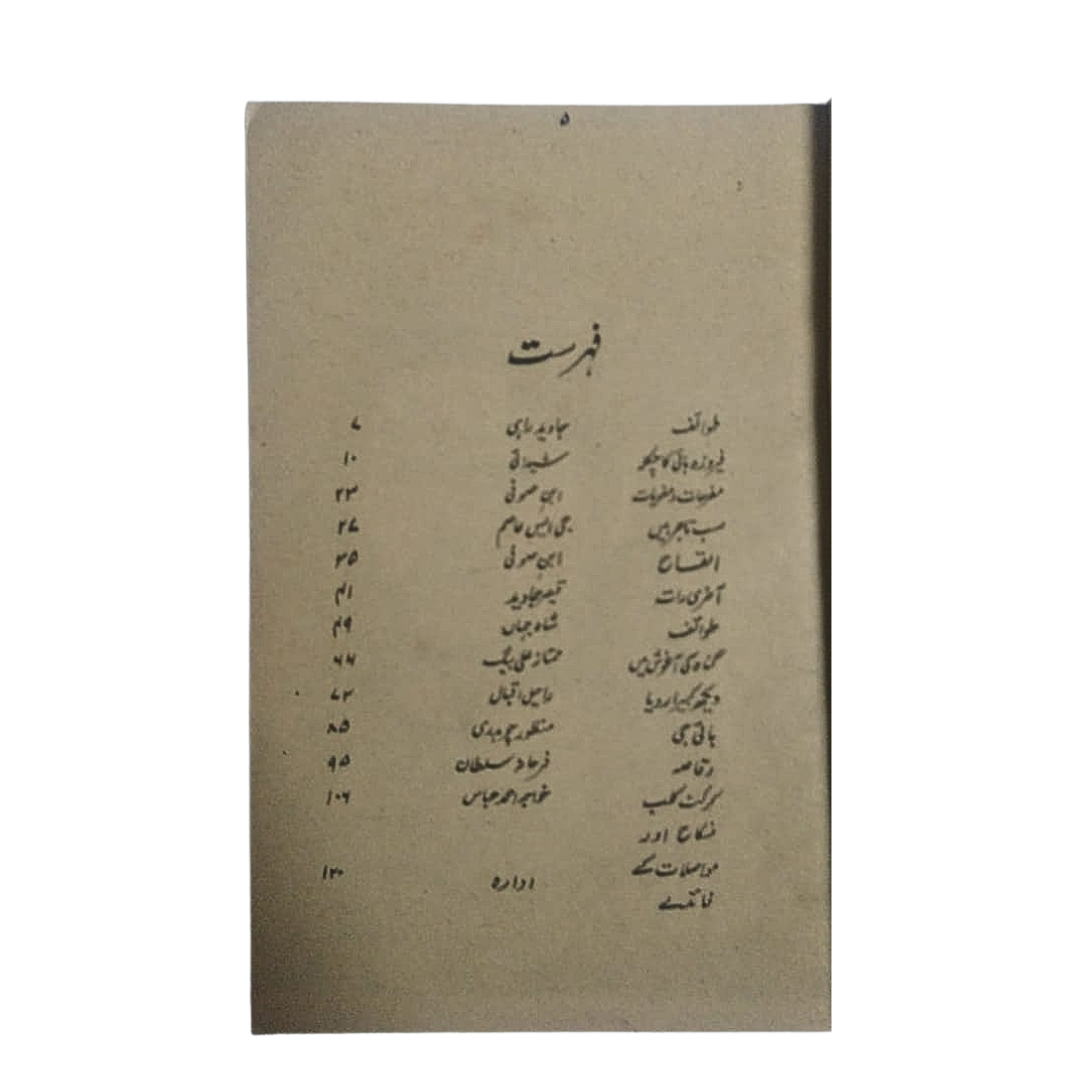 ۵
فہرست
طوائف جاوید راہی ۷
فیروزہ بائی کا چکلو شیدائی ۱۰
مفرحات و مضربات ابن صوفی ۲۳
سب تاجر ہیں جی ایس عاصم ۲۷
افتتاح ابن صوفی ۳۵
آخری رات قیصر جاوید ۴۱
طوائف شاہ جہاں ۴۹
گناہ کی آغوش میں ممتاز علی بیگ ۶۶
دیکھ کبیرا رویا راحیل اقبال ۷۳
بائی جی منظور چوہدری ۸۵
رقاصہ فرحانہ سلطان ۹۵
کرکٹ کلب خواجہ احمد عباس ۱۰۶
نکاح اور
مواصلات کے
ادارہ ۱۲۰
فائدے